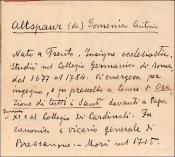 Altspaur (de) Domenico Antonio
Nato a Trento. Insigne ecclesiastico,
Studiò nel Collegio Germanico di Roma
dal 1677 al 1784. Vi emerse per
ingegno, e fu prescelto a tenere l'Ora
zione di tutti i Santi davanti a Papa
XI e al Collegio di Cardinali. Fu
canonico e vicario generale di
Bressanone. Morì nel 1715.